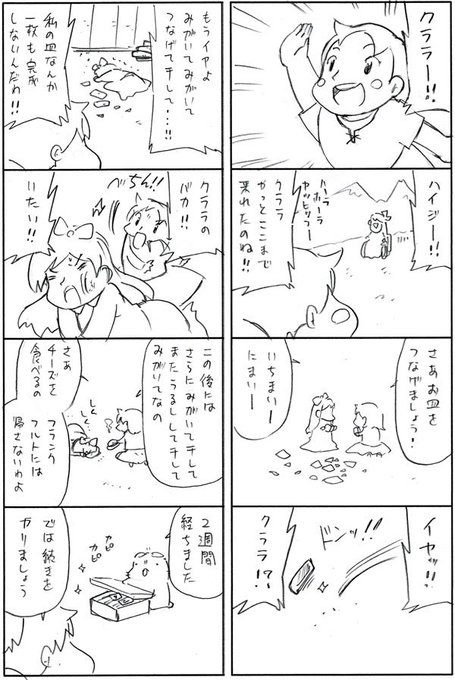 クララー!!
ハイジー!!
ハーラ
ホーラ
ヤッピリフー
クララ
やっとここまで
来れたのね!!
さあお皿を
つなげましょう!
いちまいー
にまいー
イヤッ!!
ドンッ!!
クララ!?
もうイヤよ
みがいてみがいて
つなげて干して…!!
私の皿なんか
一枚も完成
しないんだわ!!
べちん!!
クララの
バカ!!
いたい!!
この後には
さらにみがいて干して
またうるしして干して
みがいてなの
しく
しく
さあ
チーズを
食べるの
フランク
フルトには
帰さないわよ
2週間
経ちました
カピ
カピ
では続きを
やりましょう